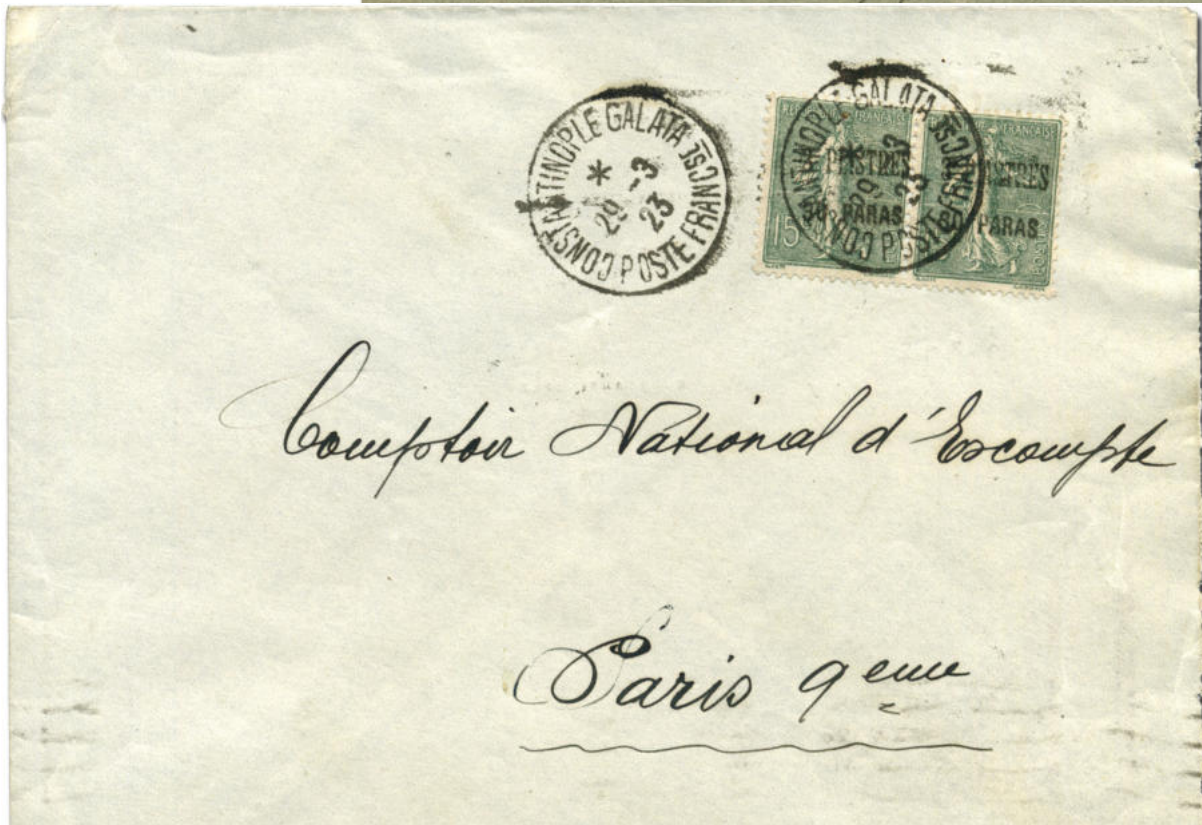 CONSTANTINOPLE GALATA
POSTE FRANÇSE
*
29 -3
23
CONSTANTINOPLE GALATA
POSTE FRANÇSE
*
29 -3
23
FRANÇAISE
PIASTRES
PARAS
15
PARAS
Comptoir National d'Escompte
Paris 9eme